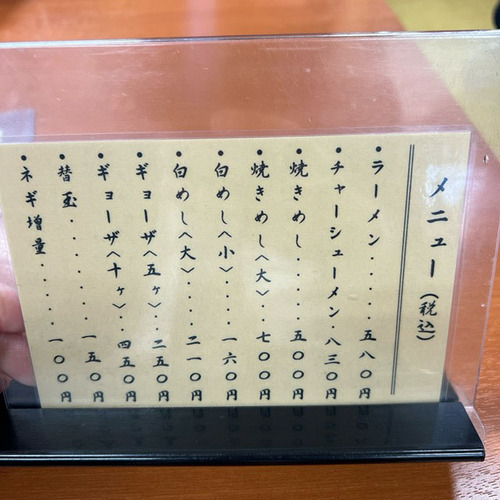 メニュー(税込)
・ラーメン.....五八〇円
・チャーシューメン..八三〇円
・焼きめし.....五〇〇円
・焼きめし〈大〉..七〇〇円
・白めし〈小〉....一六〇円
・白めし〈大〉....二一〇円
・ギョーザ〈五ヶ〉..二五〇円
・ギョーザ〈十ヶ〉..四五〇円
・替玉.......一五〇円
・ネギ増量.....一〇〇円